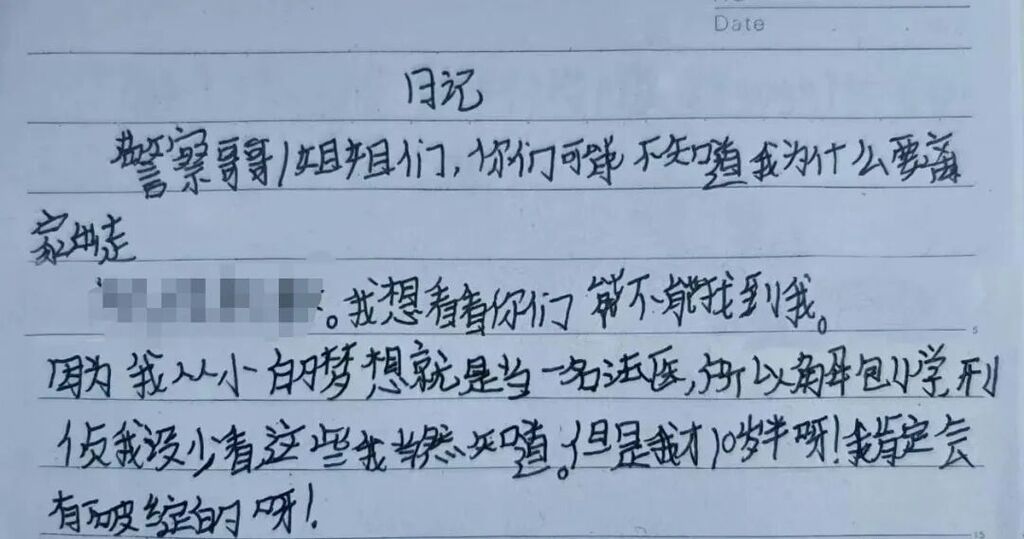 Date
日记
警察哥哥/姐姐们,你们可能不知道我为什么要离
家出走
。我想看看你们能不能找到我。
因为我从小的梦想就是当一名法医,所以解剖学,刑
侦我没少看这些我当然知道。但是我才10岁半呀!我肯定会
有破绽的呀!
5
15